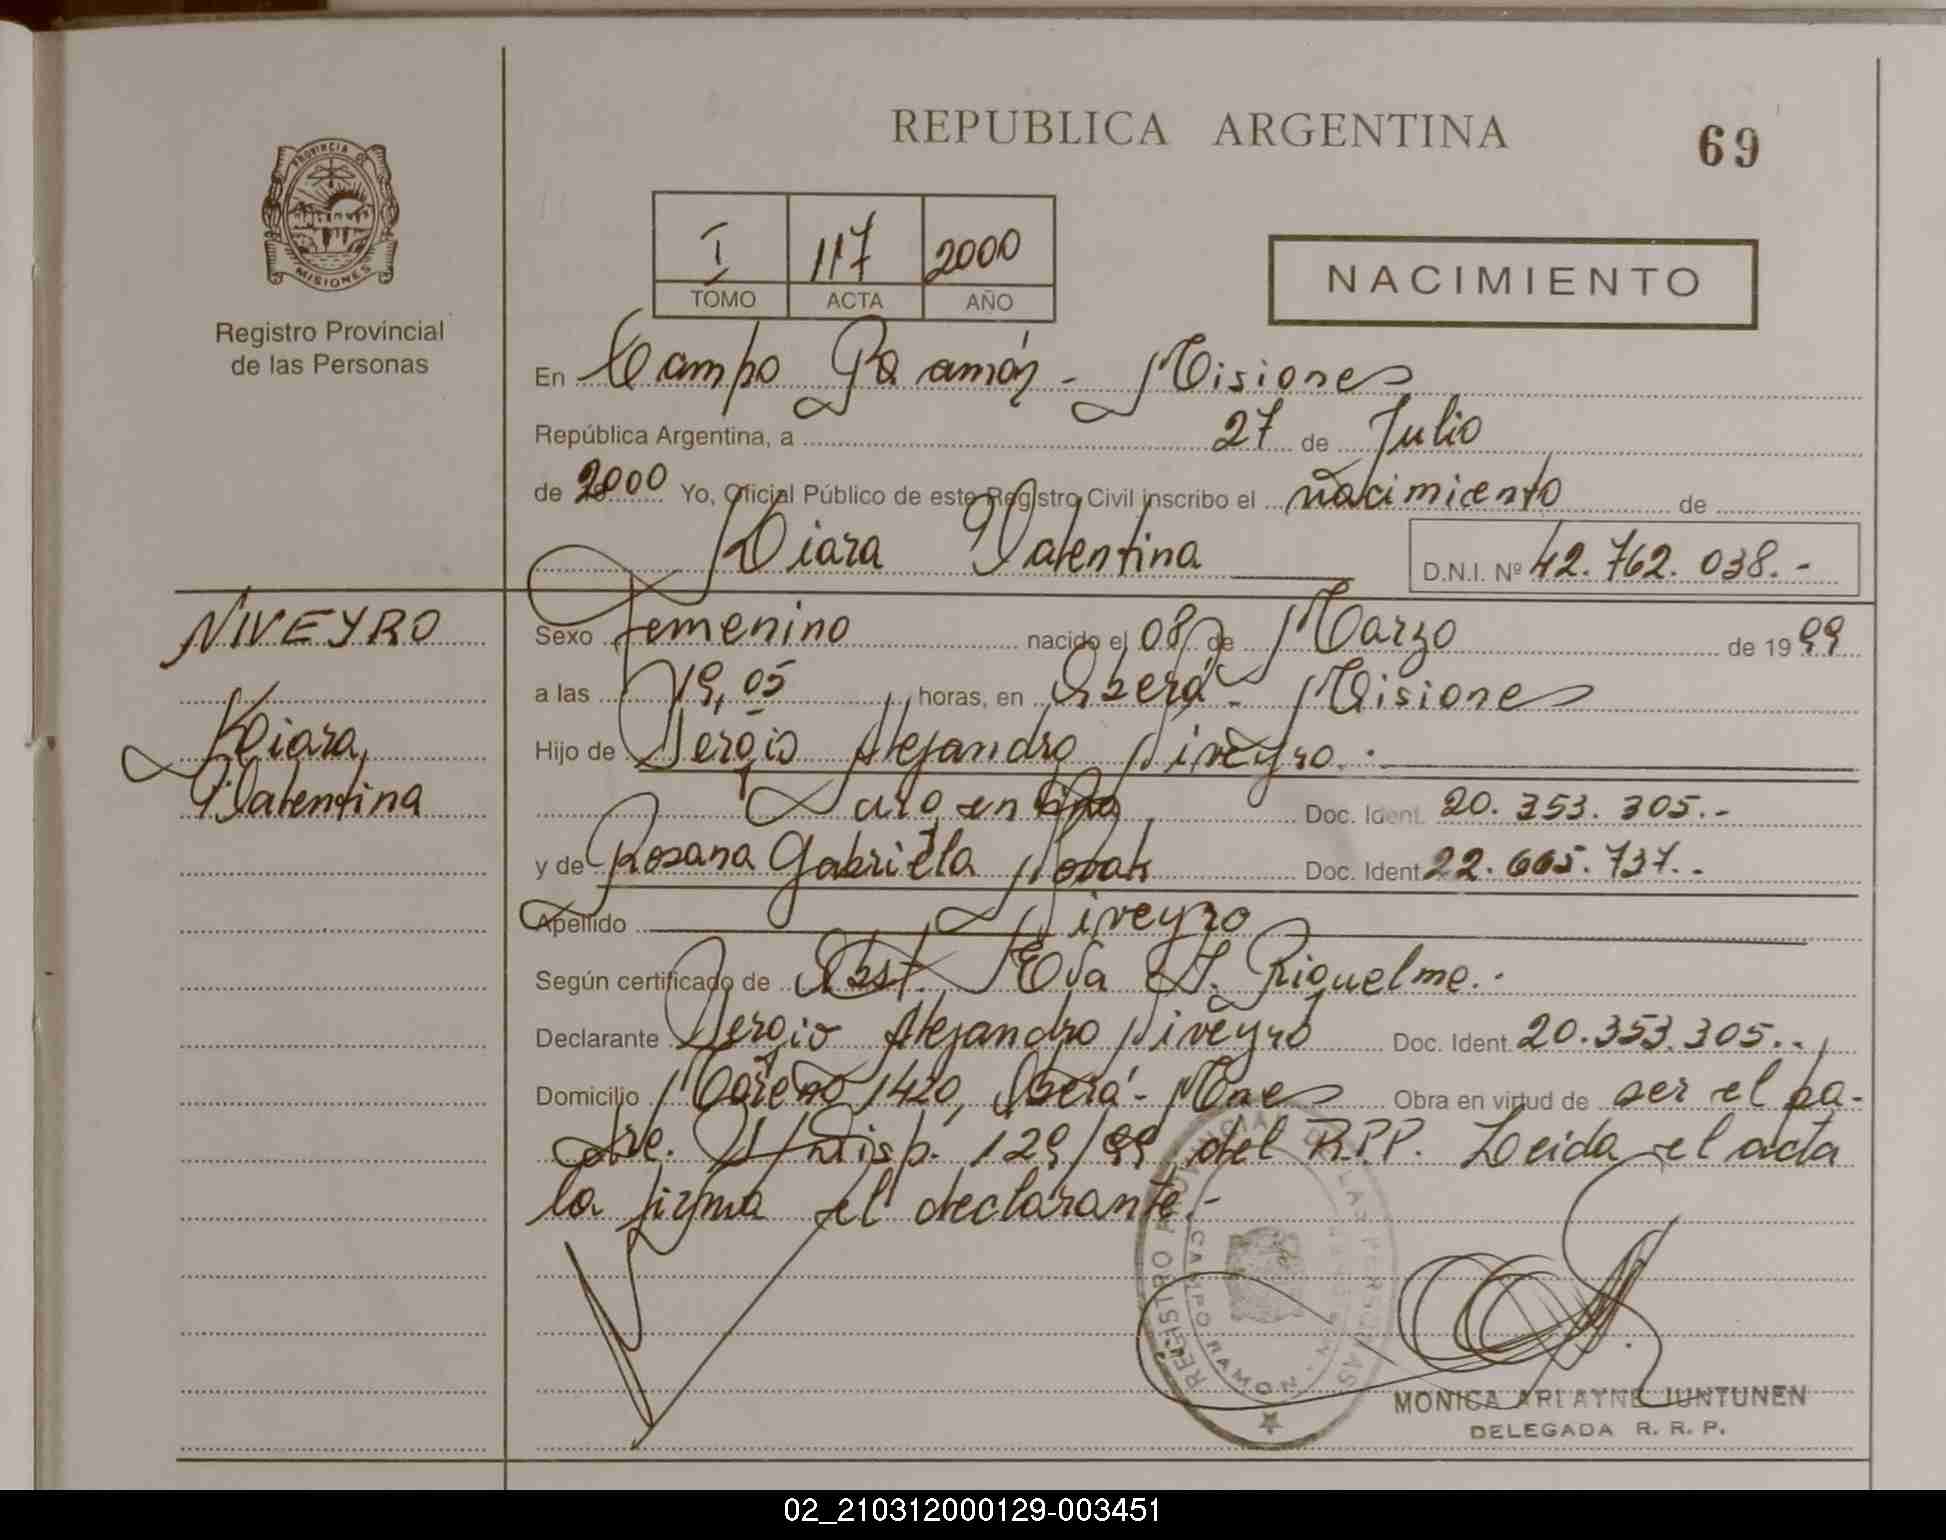 REPUBLICA ARGENTINA
69
PROVINCIA DE
MISIONES
Registro Provincial
de las Personas
I 117 2000
TOMO ACTA AÑO
NACIMIENTO
En Campo Ramón - Misiones
República Argentina, a 27 de Julio
de 2000 Yo, Oficial Público de este Registro Civil inscribo el nacimiento de
Kiara Valentina
D.N.I. Nº 42.762.038.-
NIVEYRO
Kiara
Valentina
Sexo femenino nacido el 08 de Marzo de 1999
a las 19,05 horas, en Oberá - Misiones
Hijo de Sergio Alejandro Niveyro.-
argentino Doc. Ident. 20.353.305.-
y de Rosana Gabriela Novak Doc. Ident. 22.665.737.-
Apellido Niveyro
Según certificado de Obst. Eva Riquelme.-
Declarante Sergio Alejandro Niveyro Doc. Ident. 20.353.305.-
Domicilio Moreno 1420, Oberá - Mnes Obra en virtud de ser el pa-
dre. S/Disp. 129/99 del R.P.P. Leida el acta
la firma el declarante.-
REGISTRO PROVINCIAL DE LAS PERSONAS
CAMPO RAMON
MONICA ARLAYNE JUNTUNEN
DELEGADA R. R. P.
02_210312000129-003451